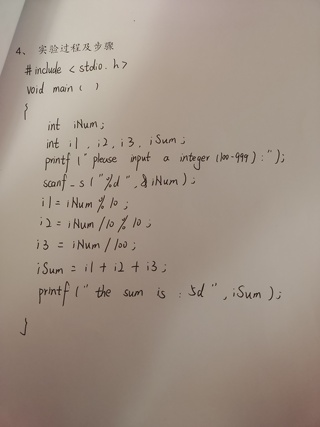 4、 实验过程及步骤
#include <stdio.h>
void main()
{
int iNum;
int i1, i2, i3, iSum;
printf("please input a integer (100-999):");
scanf_s("%d",&iNum);
i1=iNum%10;
i2=iNum/10%10;
i3=iNum/100;
iSum=i1+i2+i3;
printf("the sum is:5d",iSum);
}